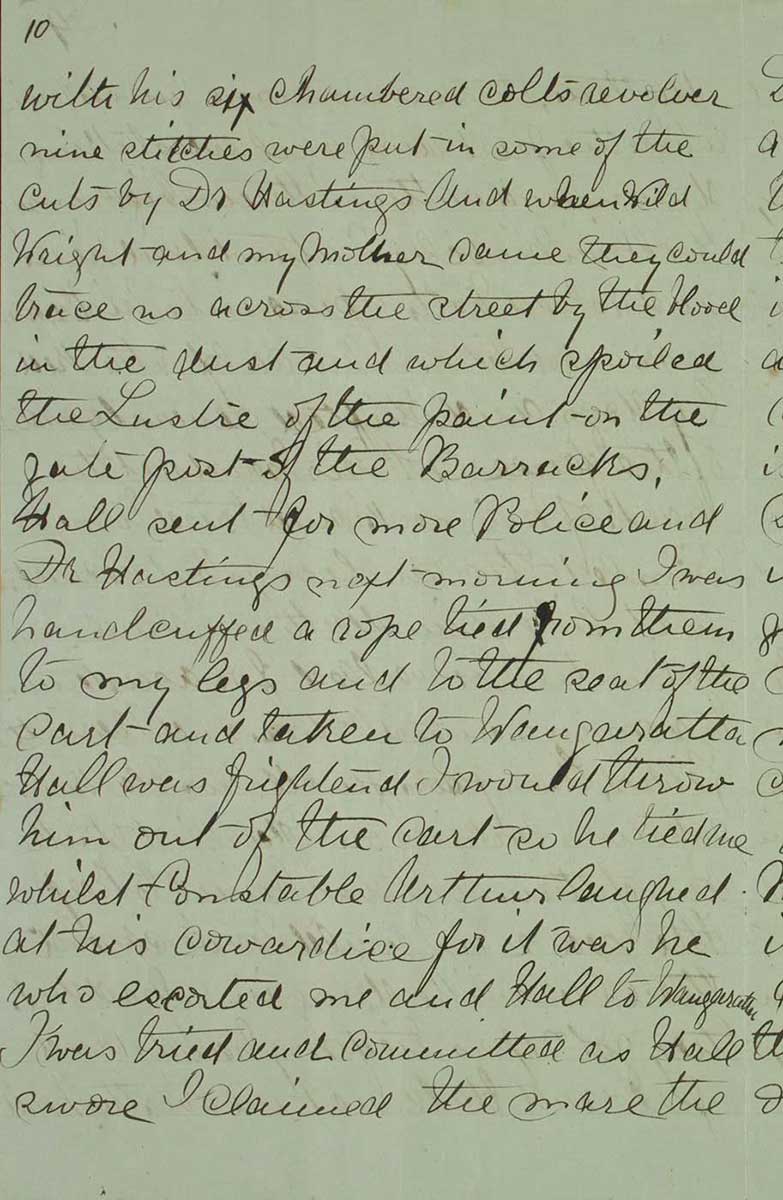 10
with his six chambered colts revolver
nine stitches were put in some of the
cuts by Dr Hastings And when Wild
Wright and my Mother came they could
trace us across the street by the blood
in the dust and which spoiled
the Lustre of the paint on the
gate post of the Barracks.
Hall sent for more Police and
Dr Hastings next morning I was
handcuffed a rope tied from them
to my legs and to the seat of the
cart and taken to Wangaratta
Hall was frightend I would throw
him out of the cart so he tied me
whilst Constable Arthur laughed
at his cowardice for it was he
who escorted me and Hall to Wangaratta
I was tried and committed as Hall
swore I claimed the mare the